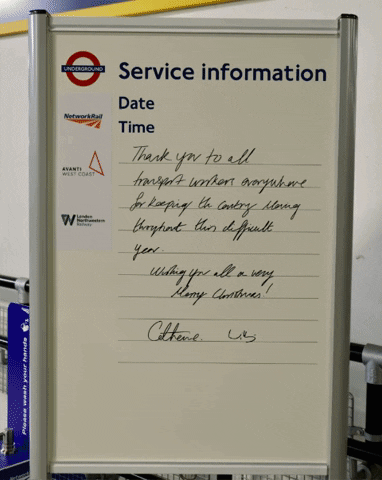 UNDERGROUND
Service information
NetworkRail
Date
Time
AVANTI
WEST COAST
London
Northwestern
Railway
Thank you to all
transport workers everywhere
for keeping the country moving
throughout this difficult
year.
Wishing you all a very
Merry Christmas!
Catherine.
Please wash your hands